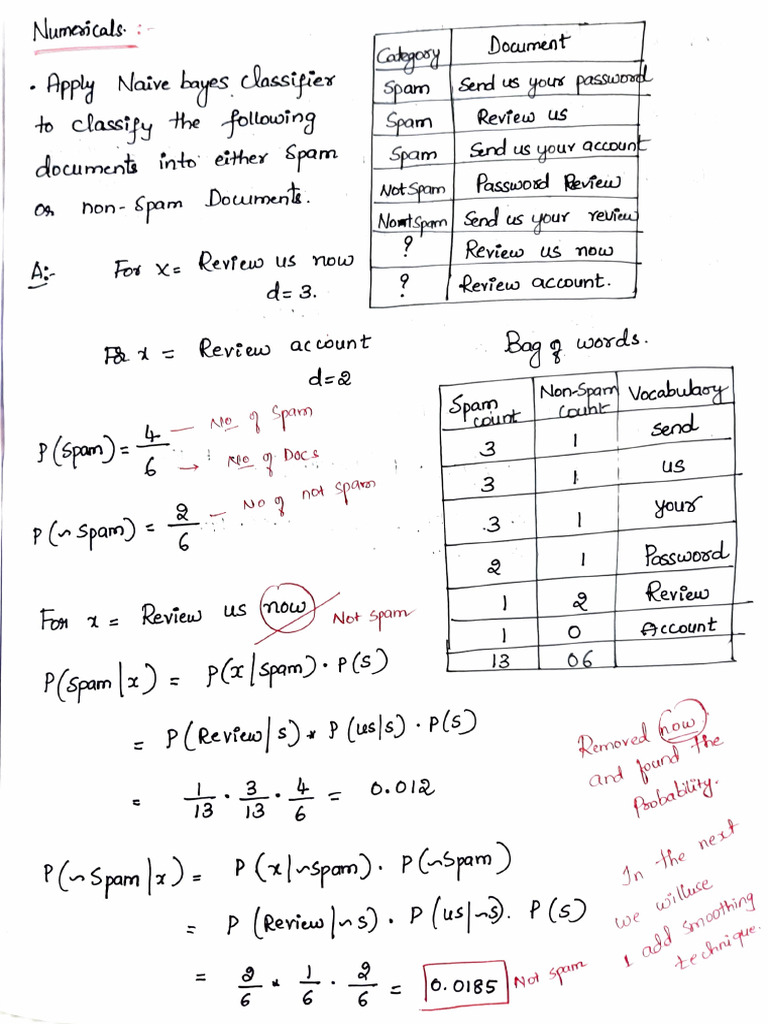 Numericals :-
• Apply Naive bayes classifier
to classify the following
documents into either Spam
or non-Spam Documents.
Category Document
Spam Send us your password
Spam Review us
Spam Send us your account
Not Spam Password Review
Not Spam Send us your review
? Review us now
? Review account.
A:- For x = Review us now
d = 3.
For x = Review account
d = 2
Bag of words.
Spam count Non-Spam count Vocabulary
3 1 send
3 1 us
3 1 your
2 1 Password
1 2 Review
1 0 Account
13 06
P(Spam) = 4/6
No of Spam
No of Docs
P(~Spam) = 2/6
No of not spam
For x = Review us now
Not spam
P(Spam|x) = P(x|spam) · P(S)
= P(Review|s) * P(us|s) · P(S)
= 1/13 · 3/13 · 4/6 = 0.012
Removed now
and found the
Probability.
P(~Spam|x) = P(x|~Spam) · P(~Spam)
= P(Review|~s) · P(us|~s) · P(S)
= 2/6 * 1/6 · 2/6 = 0.0185 Not spam
In the next
we will use
1 add smoothing
technique.